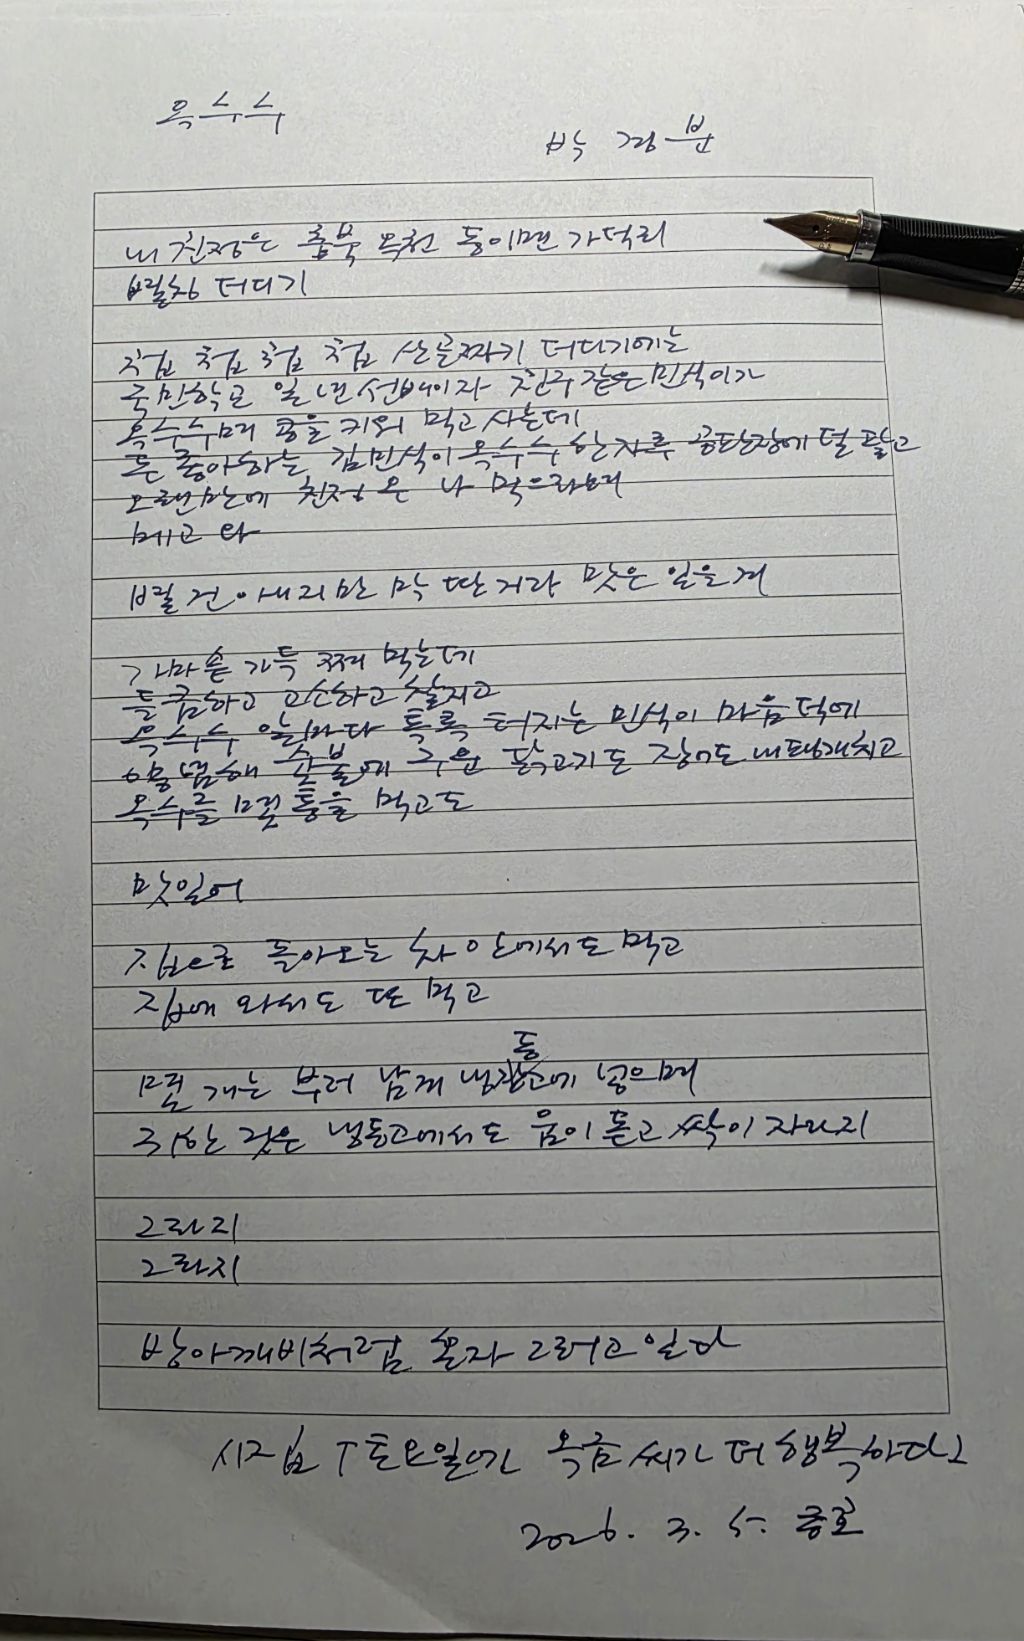 옥수수
박경분
내 친정은 충북 옥천 동이면 가덕리
별칭 더디기
첩첩 첩첩 산골짜기 더디기에는
국민학교 일 년 선배이자 친구 같은 민석이가
옥수수며 콩을 키워 먹고 사는데
돈 좋아하는 김민석이 옥수수 한 자루 공판장에 덜 팔고
오랜만에 친정 온 나 먹으라며
메고 와
별 건 아니지만 막 딴 거라 맛은 있을 겨
가마솥 가득 쪄 먹는데
들큼하고 고소하고 찰지고
옥수수 알마다 톡톡 터지는 민석이 마음 덕에
숯불에 구운 닭고기도 장어도 내팽개치고
옥수수를 몇 통을 먹고도
맛있어
집으로 돌아오는 차 안에서도 먹고
집에 와서도 또 먹고
몇 개는 부러 남겨 냉동고에 넣으며
귀한 것은 냉동고에서도 움이 돋고 싹이 자라지
그라지
그라지
방아깨비처럼 혼자 그러고 있다
시집 「토요일에 옥금 씨가 더 행복하다」
2026. 3. 5.